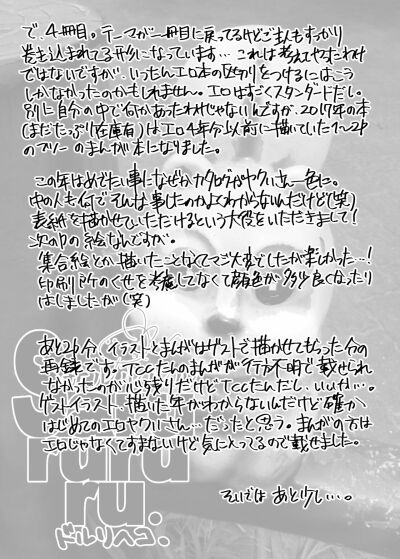 で、4冊目。テーマが一冊目に戻ってるけどご主人もすっかり
巻き込まれてる形になっています… これは考えてやったわけ
ではないですが、いったんエロ本の区切りをつけるにはこう
しかなかったのかもしれません。エロはすごくスタンダードだし。
別に自分の中で何かあったわけじゃないんですが、2017年の本
(まだたっぷり在庫有)はエロ4年分以前に描いていた1〜2p
のフリーのまんが本になりました。
この年はめでたい事になぜかカタログがヤクいさん一色に。
中の人も何でそんな事したのかよくわからないんだけど(笑)
表紙を描かせていただけるという大役をいただきまして!
次のpの絵なんですが。
集合絵とか描いたことなくてマジ大変でしたが楽しかった…!
印刷所のくせを考慮してなくて顔色が多少良くなったり
はしましたが(笑)
あと2p分、イラストとまんがはゲストで描かせてもらった分の
再録です。Tccたんのまんがが行方不明で載せられ
なかったのが心残りだけどTccたんだし、いいか…。
ゲストイラスト、描いた年がわからないんだけど確か、
はじめてのエロヤクいさん…だったと思う。まんがの方は
エロじゃなくてすまないけど気に入ってるので載せました。
それではあと少し…。
ruru
ru.
ドルリヘコ.